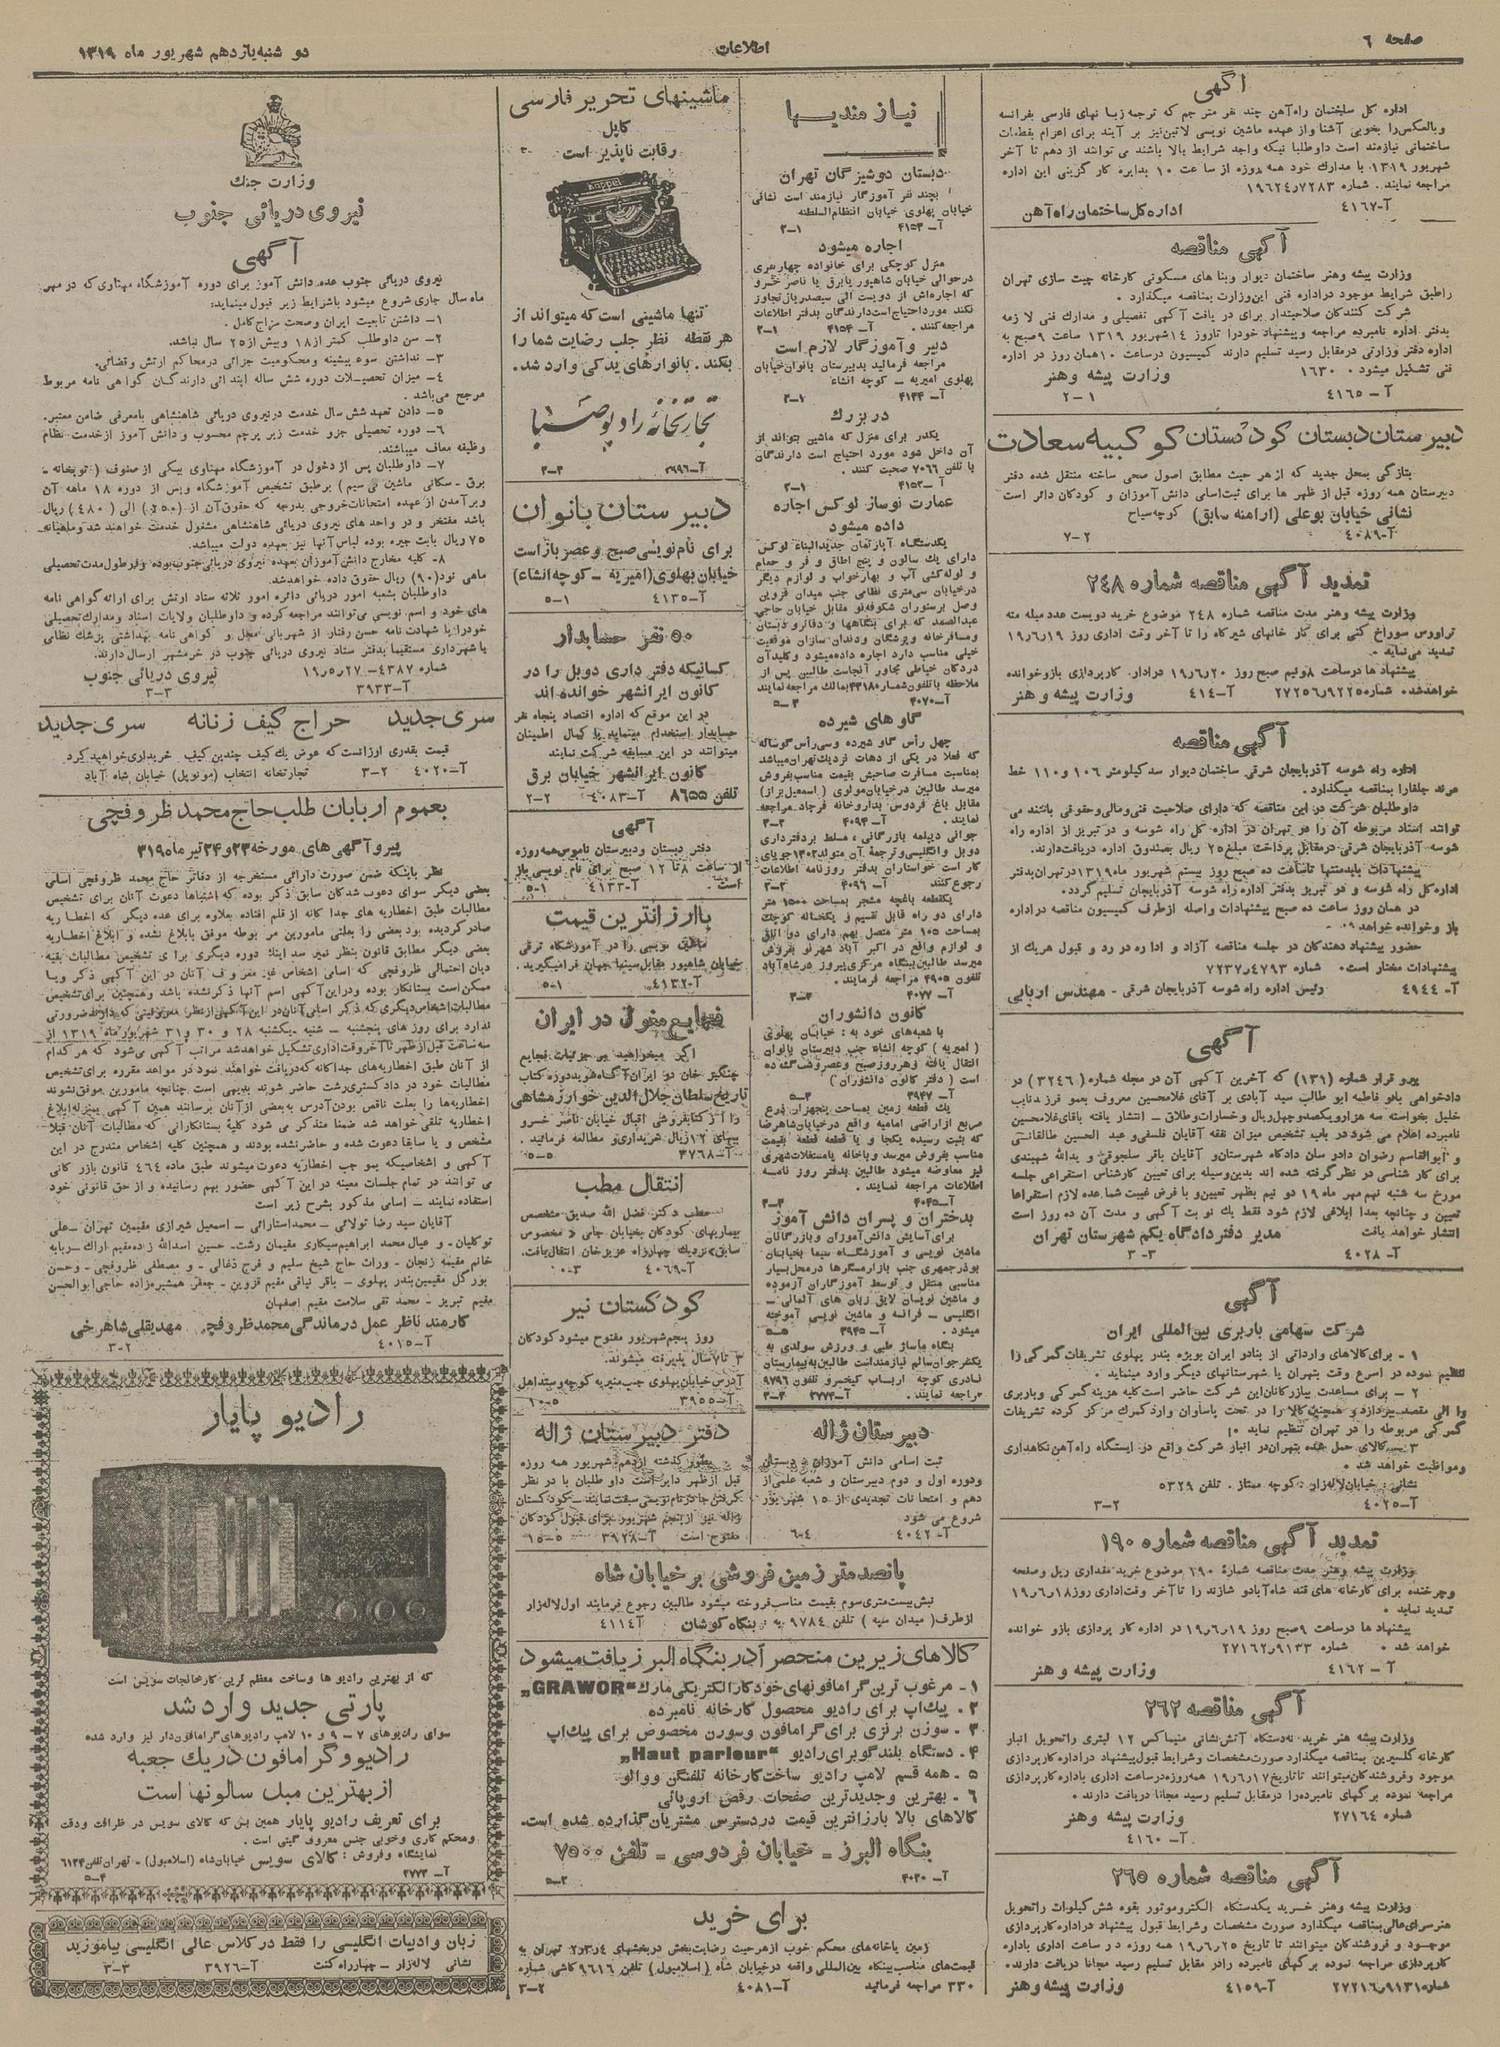 صفحه ٦
اطلاعات
دو شنبه یازدهم شهریور ماه ۱۳۱۹
آگهی
اداره کل ساختمان راه‌آهن چند نفر مترجم که ترجمه زبانهای فارسی بفرانسه
وبالعکس را بخوبی آشنا و از عهده ماشین نویسی لاتین نیز بر آیند برای اعزام بقطعات
ساختمانی نیازمند است داوطلبانیکه واجد شرایط بالا باشند می توانند از دهم تا آخر
شهریور ۱۳۱۹ با مدارك خود همه روزه از ساعت ۱۰ بدایره کار گزینی این اداره
مراجعه نمایند . شماره ۱۹۶۲۴/۷۲۸۳
آ-۴۱۶۷ اداره کل ساختمان راه آهن
آگهی مناقصه
وزارت پیشه وهنر ساختمان دیوار وبنا های مسکونی کارخانه چیت سازی تهران
راطبق شرایط موجود دراداره فنی این وزارت بمناقصه میگذارد .
شرکت کنندگان صلاحیتدار برای در یافت آگهی تفصیلی و مدارك فنی لازمه
بدفتر اداره نامبرده مراجعه وپیشنهاد خودرا تاروز ۱۴ شهریور ۱۳۱۹ ساعت ۹ صبح به
اداره دفتر وزارتی درمقابل رسید تسلیم دارند کمیسیون درساعت ۱۰ همان روز در اداره
فنی تشکیل میشود . ۱۶۳۰ وزارت پیشه وهنر
آ-۴۱۶۵ ۲-۱
دبیرستان دبستان کودکستان کوکبیه سعادت
بتازگی بمحل جدید که از هر حیث مطابق اصول صحی ساخته منتقل شده دفتر
دبیرستان همه روزه قبل از ظهر ها برای ثبت اسامی دانش آموزان و کودکان دائر است
نشانی خیابان بوعلی (ارامنه سابق) کوچه سیاح
آ-۴۰۸۹ ۷-۲
تمدید آگهی مناقصه شماره ۲۴۸
وزارت پیشه وهنر مدت مناقصه شماره ۲۴۸ موضوع خرید دویست عدد میله مته
تراورس سوراخ کنی برای کار خانهای شیرگاه را تا آخر وقت اداری روز ۱۹/۶/۱۹
تمدید می‌نماید .
پیشنهاد ها درساعت ۸ ونیم صبح روز ۱۹/۶/۲۰ دراداره کارپردازی بازوخوانده
خواهدشد . شماره ۲۷۲۵۶/۹۲۲۵ آ-۴۱۴ وزارت پیشه و هنر
آگهی مناقصه
اداره راه شوسه آذربایجان شرقی ساختمان دیوار سد کیلومتر ۱۰۶ و ۱۱۰ خط
مرند جلفارا بمناقصه میگذارد .
داوطلبان شرکت در این مناقصه که دارای صلاحیت فنی ومالی وحقوقی باشند می
توانند اسناد مربوطه آن را در تهران در اداره کل راه شوسه و در تبریز از اداره راه
شوسه آذربایجان شرقی درمقابل پرداخت مبلغ ۲۵ ریال بصندوق اداره دریافت دارند.
پیشنهادات بایدمنتها تاساعت ده صبح روز بیستم شهریور ماه ۱۳۱۹ در تهران بدفتر
اداره کل راه شوسه و در تبریز بدفتر اداره راه شوسه آذربایجان تسلیم گردد.
در همان روز ساعت ده صبح پیشنهادات واصله ازطرف کمیسیون مناقصه دراداره
باز وخوانده خواهد شد .
حضور پیشنهاد دهندگان در جلسه مناقصه آزاد و اداره در رد و قبول هر یك از
پیشنهادات مختار است . شماره ۷۲۳۷/۴۷۹۳
آ-۴۹۴۴ رئیس اداره راه شوسه آذربایجان شرقی - مهندس اربابی
آگهی
پیرو قرار شماره (۱۳۱) که آخرین آگهی آن در مجله شماره (۳۲۴۶) در
دادخواهی بانو فاطمه ابو طالب سید آبادی بر آقای غلامحسین معروف بعمو فرزند نایب
خلیل بخواسته سه هزارویکصدوچهل ریال وخسارات وطلاق - انتشار یافته باقای غلامحسین
نامبرده اعلام می شود در باب تشخیص میزان نفقه آقایان فلسفی و عبد الحسین طالقانی
و ابوالقاسم رضوان دادو سان دادگاه شهرستان و آقایان باقر سلجوقی و یدالله شهبندی
برای کار شناسی در نظر گرفته شده اند بدین وسیله برای تعیین کارشناس استقراعی جلسه
مورخ سه شنبه نهم مهر ماه ۱۹ دو نیم بظهر تعیین و با فرض غیبت شما عده لازم استقراعا
تعیین و چنانچه بعدا ابلاغی لازم شود فقط یك نوبت آگهی و مدت آن ده روز است
انتشار خواهد یافت مدیر دفتر دادگاه یکم شهرستان تهران
آ-۴۰۲۸ ۳-۳
آگهی
شرکت سهامی باربری بین‌المللی ایران
۱ - برای کالاهای وارداتی از بنادر ایران بویژه بندر پهلوی تشریفات گمرکی را
تنظیم نموده در اسرع وقت بتهران یا شهرستانهای دیگر وارد مینماید .
۲ - برای مساعدت ببازرگانان این شرکت حاضر است کلیه هزینه گمرکی وباربری
را الی مقصد بپردازد و همچنین کالا را در تحت پاساوان وارد گمرك مرکز کرده تشریفات
گمرکی مربوطه را در تهران تنظیم نماید .
۳ - کالای حمل شده بتهران در انبار شرکت واقع در ایستگاه راه آهن نگاهداری
ومواظبت خواهد شد .
نشانی : خیابان لاله‌زار : کوچه ممتاز . تلفن ۵۳۲۹
آ-۴۰۲۵ ۳-۲
تمدید آگهی مناقصه شماره ۱۹۰
وزارت پیشه وهنر مدت مناقصه شماره ۱۹۰ موضوع خرید مقداری ریل وصفحه
وچرخنده برای کارخانه های قند شاه آباد و شازند را تا آخر وقت اداری روز ۱۹/۶/۱۸
تمدید نماید .
پیشنهاد ها درساعت ۹ صبح روز ۱۹/۶/۱۹ در اداره کار پردازی بازو خوانده
خواهد شد . شماره ۲۷۱۶۲/۹۱۳۳
آ-۴۱۶۲ وزارت پیشه و هنر
آگهی مناقصه ۲۶۲
وزارت پیشه وهنر خرید نه دستگاه آتش نشانی مینیماکس ۱۲ لیتری راتحویل انبار
کارخانه گلیسیرین بمناقصه میگذارد صورت مشخصات وشرایط قبول پیشنهاد در اداره کارپردازی
موجود وفروشندگان میتوانند تا تاریخ ۱۹/۶/۱۷ همه روزه درساعت اداری باداره کارپردازی
مراجعه نموده برگهای نامبرده را درمقابل تسلیم رسید مجانا دریافت دارند .
شماره ۲۷۱۶۴ وزارت پیشه و هنر
آ-۴۱۶۰
آگهی مناقصه شماره ۲۶۵
وزارت پیشه وهنر خرید یکدستگاه الکتروموتور بقوه شش کیلوات راتحویل
هنرسرای عالی بمناقصه میگذارد صورت مشخصات وشرایط قبول پیشنهاد دراداره کارپردازی
موجود و فروشندگان میتوانند تا تاریخ ۱۹/۶/۲۵ همه روزه در ساعت اداری باداره
کارپردازی مراجعه نموده برگهای نامبرده رادر مقابل تسلیم رسید مجانا دریافت دارند .
شماره ۲۷۲۱۶/۹۱۳۱ آ-۴۱۵۹ وزارت پیشه وهنر
نیازمندیها
دبستان دوشیزگان تهران
بچند نفر آموزگار نیازمند است نشانی
خیابان پهلوی خیابان انتظام السلطنه
آ-۴۱۵۳ ۲-۱
اجاره میشود
منزل کوچکی برای خانواده چهارنفری
درحوالی خیابان شاهپور یابرق یا ناصر خسرو
که اجاره‌اش از دویست الی سیصدریال تجاوز
نکند مورداحتیاج است دارندگان بدفتر اطلاعات
مراجعه کنند . آ-۴۱۵۴ ۲-۱
دبیر و آموزگار لازم است
مراجعه فرمائید بدبیرستان بانوان خیابان
پهلوی امیریه - کوچه انشاء
آ-۴۱۳۴ ۲-۱
در بزرك
یکدر برای منزل که ماشین بتواند از
آن داخل شود مورد احتیاج است دارندگان
با تلفن ۷۰۶۶ صحبت کنند .
آ-۴۱۵۲ ۲-۱
عمارت نوساز لوکس اجاره
داده میشود
یکدستگاه آپارتمان جدیدالبناء لوکس
دارای یك سالون و پنج اطاق و فر و حمام
و لوله کشی آب و بهارخواب و لوازم دیگر
درخیابان سی‌متری نظامی جنب میدان قزوین
وصل برستوران شکوفه‌نو مقابل خیابان حاجی
عبدالصمد که برای بنگاهها و دفاتر و دبستان
ومسافرخانه وپزشگان ودندان سازان موقعیت
خیلی مناسب دارد اجاره داده میشود وکلید آن
دردکان خیاطی مجاور آنجاست طالبین پس از
ملاحظه باتلفن شماره ۴۳۱۸ بمالك مراجعه نمایند
آ-۴۰۷۰ ۵-۳
گاوهای شیرده
چهل رأس گاو شیرده وسی رأس گوساله
که فعلا در یکی از دهات نزدیك تهران میباشد
بمناسبت مسافرت صاحبش بقیمت مناسب بفروش
میرسد طالبین درخیابان مولوی (اسمعیل بزاز)
مقابل باغ فردوس بداروخانه فرجاد مراجعه
نمایند . آ-۴۰۹۴ ۳-۳
جوانی دیپلمه بازرگانی ، مسلط بردفترداری
دوبل وانگلیسی وترجمهٔ آن متولد ۱۳۰۲ جویای
کار است خواستاران بدفتر روزنامه اطلاعات
رجوع کنند آ-۴۰۹۶ ۳-۳
یکقطعه باغچه مشجر بمساحت ۱۵۰۰ متر
دارای دو راه قابل تقسیم و یکخانه کوچك
بمساحت ۱۰۵ متر متصل بهم دارای دو اطاق
و لوازم واقع در اکبر آباد شهرنو بفروش
میرسد طالبین ببنگاه مرکزی پیروز درشاه آباد
تلفون ۴۹۰۵ مراجعه فرمایند .
آ-۴۰۷۷ ۳-۳
کانون دانشوران
با شعبه‌های خود به : خیابان پهلوی
( امیریه ) کوچه انشاء جنب دبیرستان بانوان
انتقال یافته وهرروز صبح وعصر مفتوح شده
است ( دفتر کانون دانشوران )
آ-۳۹۴۷ ۵-۳
یك قطعه زمین بمساحت پنجهزار ذرع
مربع ازاراضی امامیه واقع درخیابان شاهرضا
که ثبت رسیده یکجا و یا قطعه قطعه بقیمت
مناسب بفروش میرسد وباخانه یامستغلات شهری
نیز معاوضه میشود طالبین بدفتر روز نامه
اطلاعات مراجعه نمایند .
آ-۴۰۴۵ ۳-۳
بدختران و پسران دانش آموز
برای آسایش دانش آموزان وبازرگانان
ماشین نویسی و آموزشگاه سیما بخیابان
بوذرجمهری جنب بازارمسگرها درمحل بسیار
مناسبی منتقل و توسط آموزگاران آزموده
و ماشین نویسان لایق زبان های آلمانی -
انگلیسی - فرانسه و ماشین نویسی آموخته
میشود . آ-۳۹۴۵ ۵-۵
بنگاه ماساژ طبی و ورزش سوئدی به
یکنفر جوان سالم نیازمند است طالبین به بیمارستان
نادری کوچه ارباب کیخسرو تلفون ۹۷۹۶
مراجعه نمایند . آ-۳۷۷۴ ۳-۳
دبیرستان ژاله
ثبت اسامی دانش آموزان دبستان
ودوره اول و دوم دبیرستان و شعبه علمی از
دهم و امتحانات تجدیدی از ۱۵ شهریور
شروع می شود
آ-۴۰۴۲ ۶-۴
ماشینهای تحریر فارسی
کاپل
رقابت ناپذیر است
Kappel
تنها ماشینی است که میتواند از
هر نقطه نظر جلب رضایت شما را
بکند . بانوارهای یدکی وارد شد.
تجارتخانه رادیو صبا
آ-۳۹۹۶ ۳-۳
دبیرستان بانوان
برای نام نویسی صبح و عصر باز است
خیابان پهلوی (امیریه - کوچه انشاء)
آ-۴۱۳۵ ۵-۱
۵۰ نفر حسابدار
کسانیکه دفتر داری دوبل را در
کانون ایرانشهر خوانده اند
در این موقع که اداره اقتصاد پنجاه نفر
حسابدار استخدام مینماید با کمال اطمینان
میتوانند در این مسابقه شرکت نمایند
کانون ایرانشهر خیابان برق
تلفن ۸۶۵۵ آ-۴۰۸۳ ۲-۲
آگهی
دفتر دبستان ودبیرستان ناموس همه روزه
از ساعت ۸ تا ۱۲ صبح برای نام نویسی باز
است . آ-۴۱۳۳ ۵-۱
با ارزانترین قیمت
ماشین نویسی را در آموزشگاه ترقی
خیابان شاهپور مقابل سینما جهان فراگیرید .
آ-۴۱۳۲ ۵-۱
فجایع مغول در ایران
اگر میخواهید بر جزئیات فجایع
چنگیز خان در ایران آگاه شوید دوره کتاب
تاریخ سلطان جلال الدین خوارزمشاهی
را از کتابفروشی اقبال خیابان ناصر خسرو
ببهای ۱۲ ریال خریداری و مطالعه فرمائید .
آ-۳۷۶۸ ۵-۵
انتقال مطب
مطب دکتر فضل الله صدیق متخصص
بیماریهای کودکان بخیابان جامی « مخصوص
سابق » نزدیك چهارراه عزیزخان انتقال یافت.
آ-۴۰۶۹ ۱۰-۳
کودکستان نیر
روز پنجم شهریور مفتوح میشود کودکان
۳ تا ۷ سال پذیرفته میشوند.
آدرس خیابان پهلوی جنب منیریه کوچه وستداهل
آ-۳۹۵۵ ۱۰-۵
دفتر دبیرستان ژاله
بطور گذشته از دهم شهریور همه روزه
قبل از ظهر دایر است داوطلبان با در نظر
گرفتن جا در نام نویسی سبقت نمایند - کودکستان
ژاله نیز از پنجم شهریور برای قبول کودکان
مفتوح است آ-۳۹۲۸ ۱۵-۵
پانصد متر زمین فروشی بر خیابان شاه
نبش بیست متری سوم بقیمت مناسب فروخته میشود طالبین رجوع فرمایند اول لاله‌زار
ازطرف ( میدان سپه ) تلفن ۹۷۸۴ به : بنگاه کوشان آ-۴۱۱۴
کالاهای زیرین منحصراً در بنگاه البرز یافت میشود
۱ - مرغوب ترین گرامافونهای خود کار الکتریکی مارك "GRAWOR"
۲ . پیك‌اپ برای رادیو محصول کارخانه نامبرده
۳ - سوزن برنزی برای گرامافون وسوزن مخصوص برای پیك‌اپ
۴ . دستگاه بلندگو برای رادیو "Haut parleur"
۵ - همه قسم لامپ رادیو ساخت کارخانه تلفنکن ووالوو
۶ - بهترین وجدیدترین صفحات رقص اروپائی
کالاهای بالا بارزانترین قیمت دردسترس مشتریان گذارده شده است.
بنگاه البرز - خیابان فردوسی - تلفن ۷۵۰۰
آ-۴۰۳۰ ۵-۳
برای خرید
زمین یاخانه‌های محکم خوب از هر حیث رضایت‌بخش در بخشهای ۲ و ۳ و ۴ تهران به
قیمت‌های مناسب ببنگاه بین‌المللی واقعه درخیابان شاه (اسلامبول) تلفن ۹۶۱۶ کاشی شماره
۳۳۰ مراجعه فرمائید آ-۴۰۸۱ ۳-۲
وزارت جنك
نیروی دریائی جنوب
آگهی
نیروی دریائی جنوب عده دانش آموز برای دوره آموزشگاه مهناوی که در مهر
ماه سال جاری شروع میشود باشرایط زیر قبول مینماید:
۱- داشتن تابعیت ایران وصحت مزاج کامل .
۲- سن داوطلب کمتر از ۱۸ وبیش از ۲۵ سال نباشد.
۳- نداشتن سوء پیشینه ومحکومیت جزائی درمحاکم ارتش وقضائی.
۴- میزان تحصیلات دوره شش ساله ابتدائی دارندگان گواهی نامه مربوط
مرجح می‌باشد .
۵- دادن تعهد شش سال خدمت درنیروی دریائی شاهنشاهی بامعرفی ضامن معتبر.
۶- دوره تحصیلی جزو خدمت زیر پرچم محسوب و دانش آموز ازخدمت نظام
وظیفه معاف میباشند.
۷- داوطلبان پس از دخول در آموزشگاه مهناوی بیکی از صنوف ( توپخانه -
برق - سکانی ماشین بی سیم ) برطبق تشخیص آموزشگاه وپس از دوره ۱۸ ماهه آن
وبرآمدن از عهده امتحانات خروجی بدرجه که حقوق آن از (۲۵۰) الی (۴۸۰) ریال
باشد مفتخر و در واحد های نیروی دریائی شاهنشاهی مشغول خدمت خواهند شد وماهیانه
۷۵ ریال بابت جیره بوده لباس آنها نیز بعهده دولت میباشد.
۸- کلیه مخارج دانش آموزان بعهده نیروی دریائی جنوب بوده ودرطول مدت تحصیلی
ماهی نود (۹۰) ریال حقوق داده خواهدشد.
داوطلبان بشعبه امور دریائی دائره امور ثلاثه ستاد ارتش برای ارائه گواهی نامه
های خود و اسم نویسی می‌توانند مراجعه کرده و داوطلبان ولایات اسناد ومدارك تحصیلی
خودرا با شهادت نامه حسن رفتار از شهربانی محل و گواهی نامه بهداشتی پزشك نظامی
یا شهرداری مستقیما بدفتر ستاد نیروی دریائی جنوب در خرمشهر ارسال دارند.
شماره ۴۳۸۷-۱۹/۵/۲۷ نیروی دریائی جنوب
آ-۳۹۳۳ ۳-۳
سری جدید حراج کیف زنانه سری جدید
قیمت بقدری ارزانست که عوض یك کیف چندین کیف خریداری خواهید کرد
آ-۴۰۲۰ ۳-۲ تجارتخانه انتخاب (مونوپل) خیابان شاه آباد
بعموم اربابان طلب حاج محمد ظروفچی
پیرو آگهی های مورخه ۲۳ و ۲۴ تیر ماه ۳۱۹
نظر باینکه ضمن صورت دارائی مستخرجه از دفاتر حاج محمد ظروفچی اسامی
بعضی دیگر سوای دعوب شدگان سابق ذکر بوده که اشتباها دعوت آنان برای تشخیص
مطالبات طبق اخطاریه های جدا گانه از قلم افتاده بعلاوه برای عده دیگر که اخطاریه
صادر گردیده بود بعضی را بعلتی مامورین مربوطه موفق بابلاغ نشده و ابلاغ اخطاریه
بعضی دیگر مطابق قانون بنظر نمیرسد اینك دوره دیگری برای تشخیص مطالبات بقیه
دیان احتمالی ظروفچی که اسامی اشخاص غیر معروف آنان در این آگهی ذکر ویا
ممکن است بستانکار بوده ودراین آگهی اسم آنها ذکرنشده باشد وهمچنین برای تشخیص
مطالبات اشخاص دیگری که ذکر اسامی آنان در این آگهی از نظر معروفیتی که دارند ضرورتی
ندارد برای روز های پنجشنبه - شنبه - یکشنبه ۲۸ و ۳۰ و ۳۱ شهریور ماه ۱۳۱۹ از
سه ساعت قبل از ظهر تا آخر وقت اداری تشکیل خواهد شد مراتب آگهی می‌شود که هر کدام
از آنان طبق اخطاریه‌های جداگانه که دریافت خواهند نمود در مواعد مقرره برای تشخیص
مطالبات خود در دادگستری رشت حاضر شوند بدیهی است چنانچه مامورین موفق نشوند
اخطاریه‌ها را بعلت ناقص بودن آدرس به بعضی از آنان برسانند همین آگهی بمنزله ابلاغ
اخطاریه تلقی خواهد شد ضمنا متذکر می شود کلیهٔ بستانکارانی که مطالبات آنان قبلا
مشخص و یا سابقا دعوت شده و حاضر نشده بودند و همچنین کلیه اشخاص مندرج در این
آگهی و اشخاصیکه بموجب اخطاریه دعوت میشوند طبق ماده ۴۶۴ قانون بازرگانی
می توانند در تمام جلسات معینه در این آگهی حضور بهم رسانیده و از حق قانونی خود
استفاده نمایند - اسامی مذکور بشرح زیر است
آقایان سید رضا تولائی - محمد استارائی - اسمعیل شیرازی مقیمین تهران - علی
توکلیان - و عیال محمد ابراهیم سیگاری مقیمان رشت - حسین اسدالله زاده مقیم اراك - ربابه
خانم مقیمه زنجان - وراث حاج شیخ سلیم و فرج ذغالی - و مصطفی ظروفچی - وحسن
بورگل مقیمین بندر پهلوی - باقر نیاقی مقیم قزوین - جعفر همشیره زاده حاجی ابوالحسن
مقیم تبریز - محمد تقی سلامت مقیم اصفهان
کارمند ناظر عمل درماندگی محمد ظروفچی مهدیقلی شاهرخی
آ-۴۰۱۵ ۳-۲
رادیو پایار
که از بهترین رادیو ها وساخت معظم ترین کارخانجات سویس است
پارتی جدید وارد شد
سوای رادیوهای ۷ - ۹ و ۱۰ لامپ رادیوهای گرامافون‌دار نیز وارد شده
رادیو و گرامافون در یك جعبه
از بهترین مبل سالونها است
برای تعریف رادیو پایار همین بس که کالای سویس در ظرافت ودقت
ومحکم کاری وخوبی جنس معروف گیتی است .
نمایشگاه وفروش : کالای سویس خیابان شاه (اسلامبول) - تهران تلفن ۶۱۳۴
آ-۲۷۷۳ ۵-۴
زبان و ادبیات انگلیسی را فقط در کلاس عالی انگلیسی بیاموزید
نشانی لاله‌زار - چهارراه کنت آ-۳۹۲۶ ۳-۳